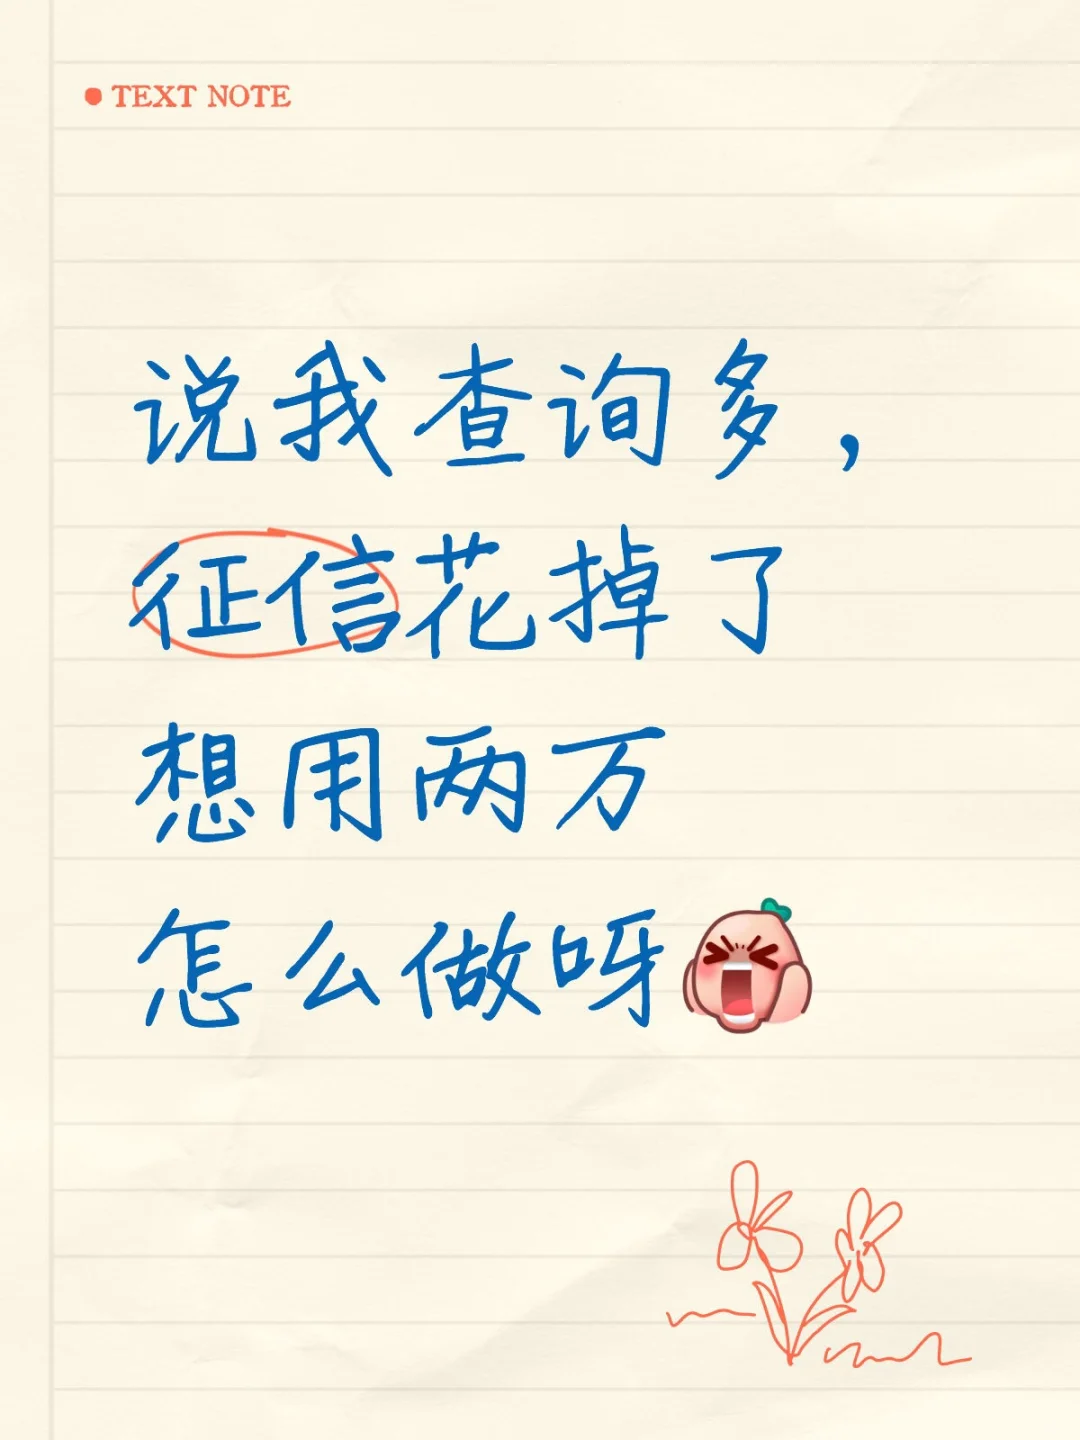 TEXT NOTE
说我查询多，
征信花掉了
想用两万
怎么做呀